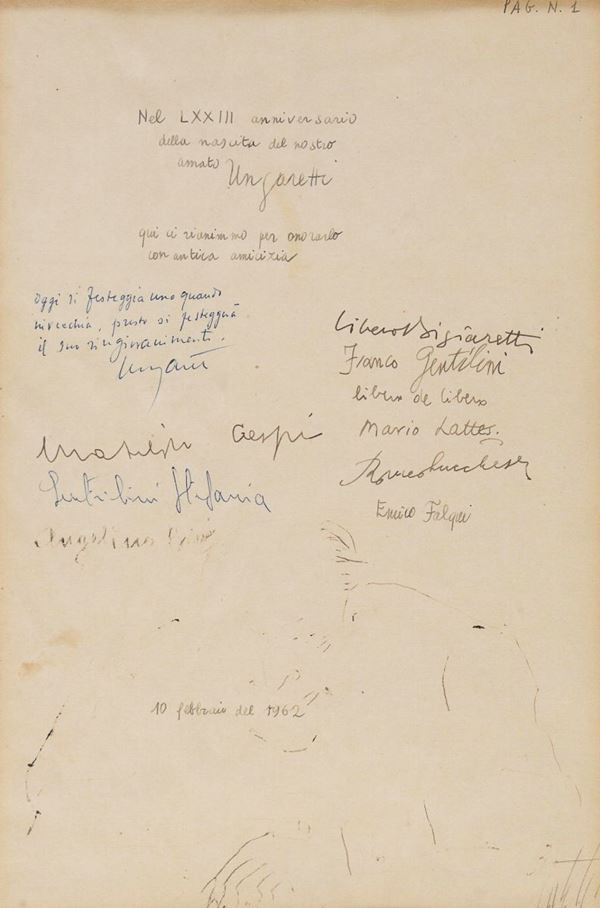 PAG. N. 1
Nel LXXIII anniversario
della nascita del nostro
amato Ungaretti
qui ci riunimmo per onorarlo
con antica amicizia
Oggi si festeggia uno quando
invecchia, presto si festeggerà
il suo ringiovanimento.
Ungaretti
Libero Bigiaretti
Franco Gentilini
libero de libero
Mario Lattes
Romeo Lucchese
Enrico Falqui
Matilde Crespi
Gentilini Stefania
Angelina
10 febbraio del 1962